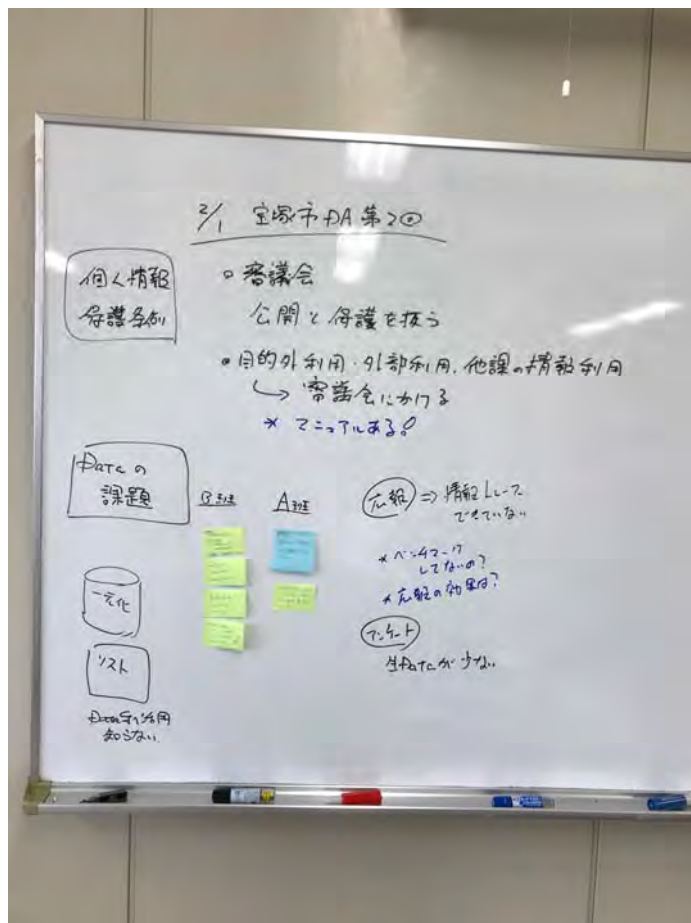 2/1 宝塚市DA第2回
個人情報
保護条例
審議会
公開と保護を扱う
目的外利用・外部利用、他課の情報利用
→ 審議会にかける
* マニュアルある!
Dataの
課題
B班
A班
広報 ⇒ 情報トレース
できていない
* ベンチマーク
してないの?
* 広報の効果は?
一元化
アンケート
生Dataが少ない
リスト
Data利活用
知らない